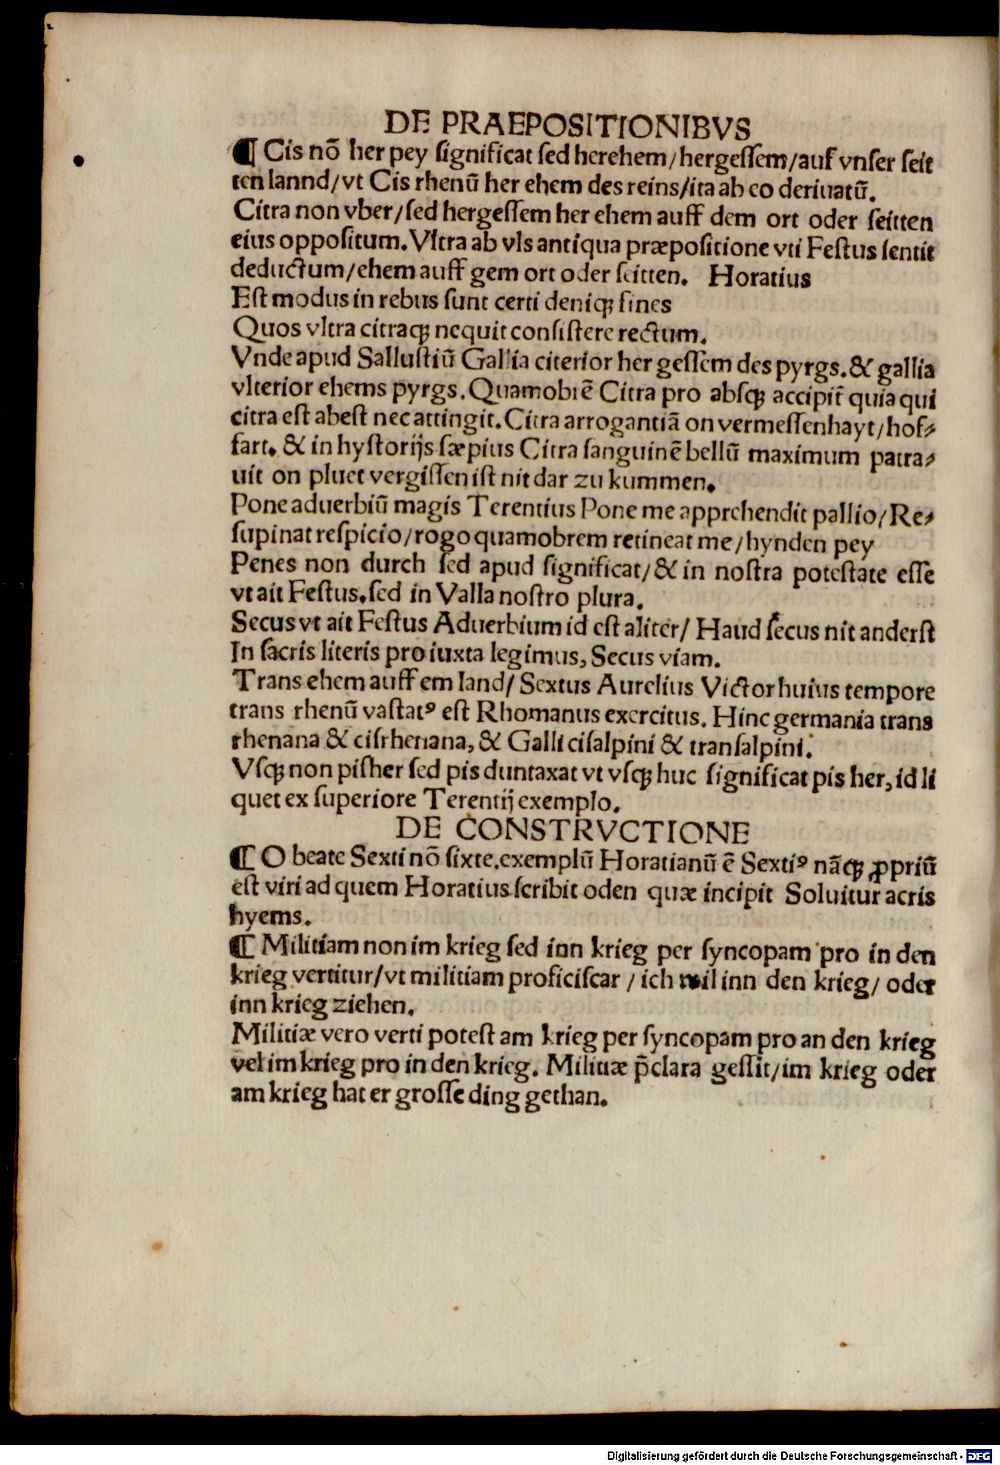 DE PRAEPOSITIONIBVS
¶ Cis nõ her pey significat sed herehem/hergessem/auf vnser seit
ten lannd/vt Cis rhenũ her ehem des reins/ita ab eo deriuatũ.
Citra non vber/sed hergessem her ehem auff dem ort oder seitten
eius oppositum.Vltra ab vls antiqua præpositione vti Festus sentit
deductum/ehem auff gem ort oder seitten. Horatius
Est modus in rebus sunt certi deniqꝫ fines
Quos vltra citraqꝫ nequit consistere rectum.
Vnde apud Sallustiũ Gallia citerior her gessem des pyrgs.& gallia
vlterior ehems pyrgs.Quamobrẽ Citra pro absqꝫ accipit̃ quia qui
citra est abest nec attingit.Citra arrogantiã on vermessenhayt/hof⸗
fart.& in hystorijs sæpius Citra sanguinẽ bellũ maximum patra⸗
uit on pluet vergissen ist nit dar zu kummen.
Pone aduerbiũ magis Terentius Pone me apprehendit pallio/Re⸗
supinat respicio/rogo quamobrem retineat me/hynden pey
Penes non durch sed apud significat/& in nostra potestate esse
vt ait Festus.sed in Valla nostro plura.
Secus vt ait Festus Aduerbium id est aliter/ Haud secus nit anderst
In sacris literis pro iuxta legimus, Secus viam.
Trans ehem auff em land/ Sextus Aurelius Victor huius tempore
trans rhenũ vastatꝰ est Rhomanus exercitus. Hinc germania trans
rhenana & cisrhenana, & Galli cisalpini & transalpini.
Vsqꝫ non pisher sed pis duntaxat vt vsqꝫ huc significat pis her, id li
quet ex superiore Terentij exemplo.
DE CONSTRVCTIONE
¶ O beate Sexti nõ sixte.exemplũ Horatianũ ẽ Sextiꝰ nãqꝫ ꝓpriũ
est viri ad quem Horatius scribit oden quæ incipit Soluitur acris
hyems.
¶ Militiam non im krieg sed inn krieg per syncopam pro in den
krieg vertitur/vt militiam proficiscar / ich wil inn den krieg/ oder
inn krieg ziehen.
Militiæ vero verti potest am krieg per syncopam pro an den krieg
vel im krieg pro in den krieg. Militiæ p̃clara gessit/im krieg oder
am krieg hat er grosse ding gethan.
Digitalisierung gefördert durch die Deutsche Forschungsgemeinschaft - DFG